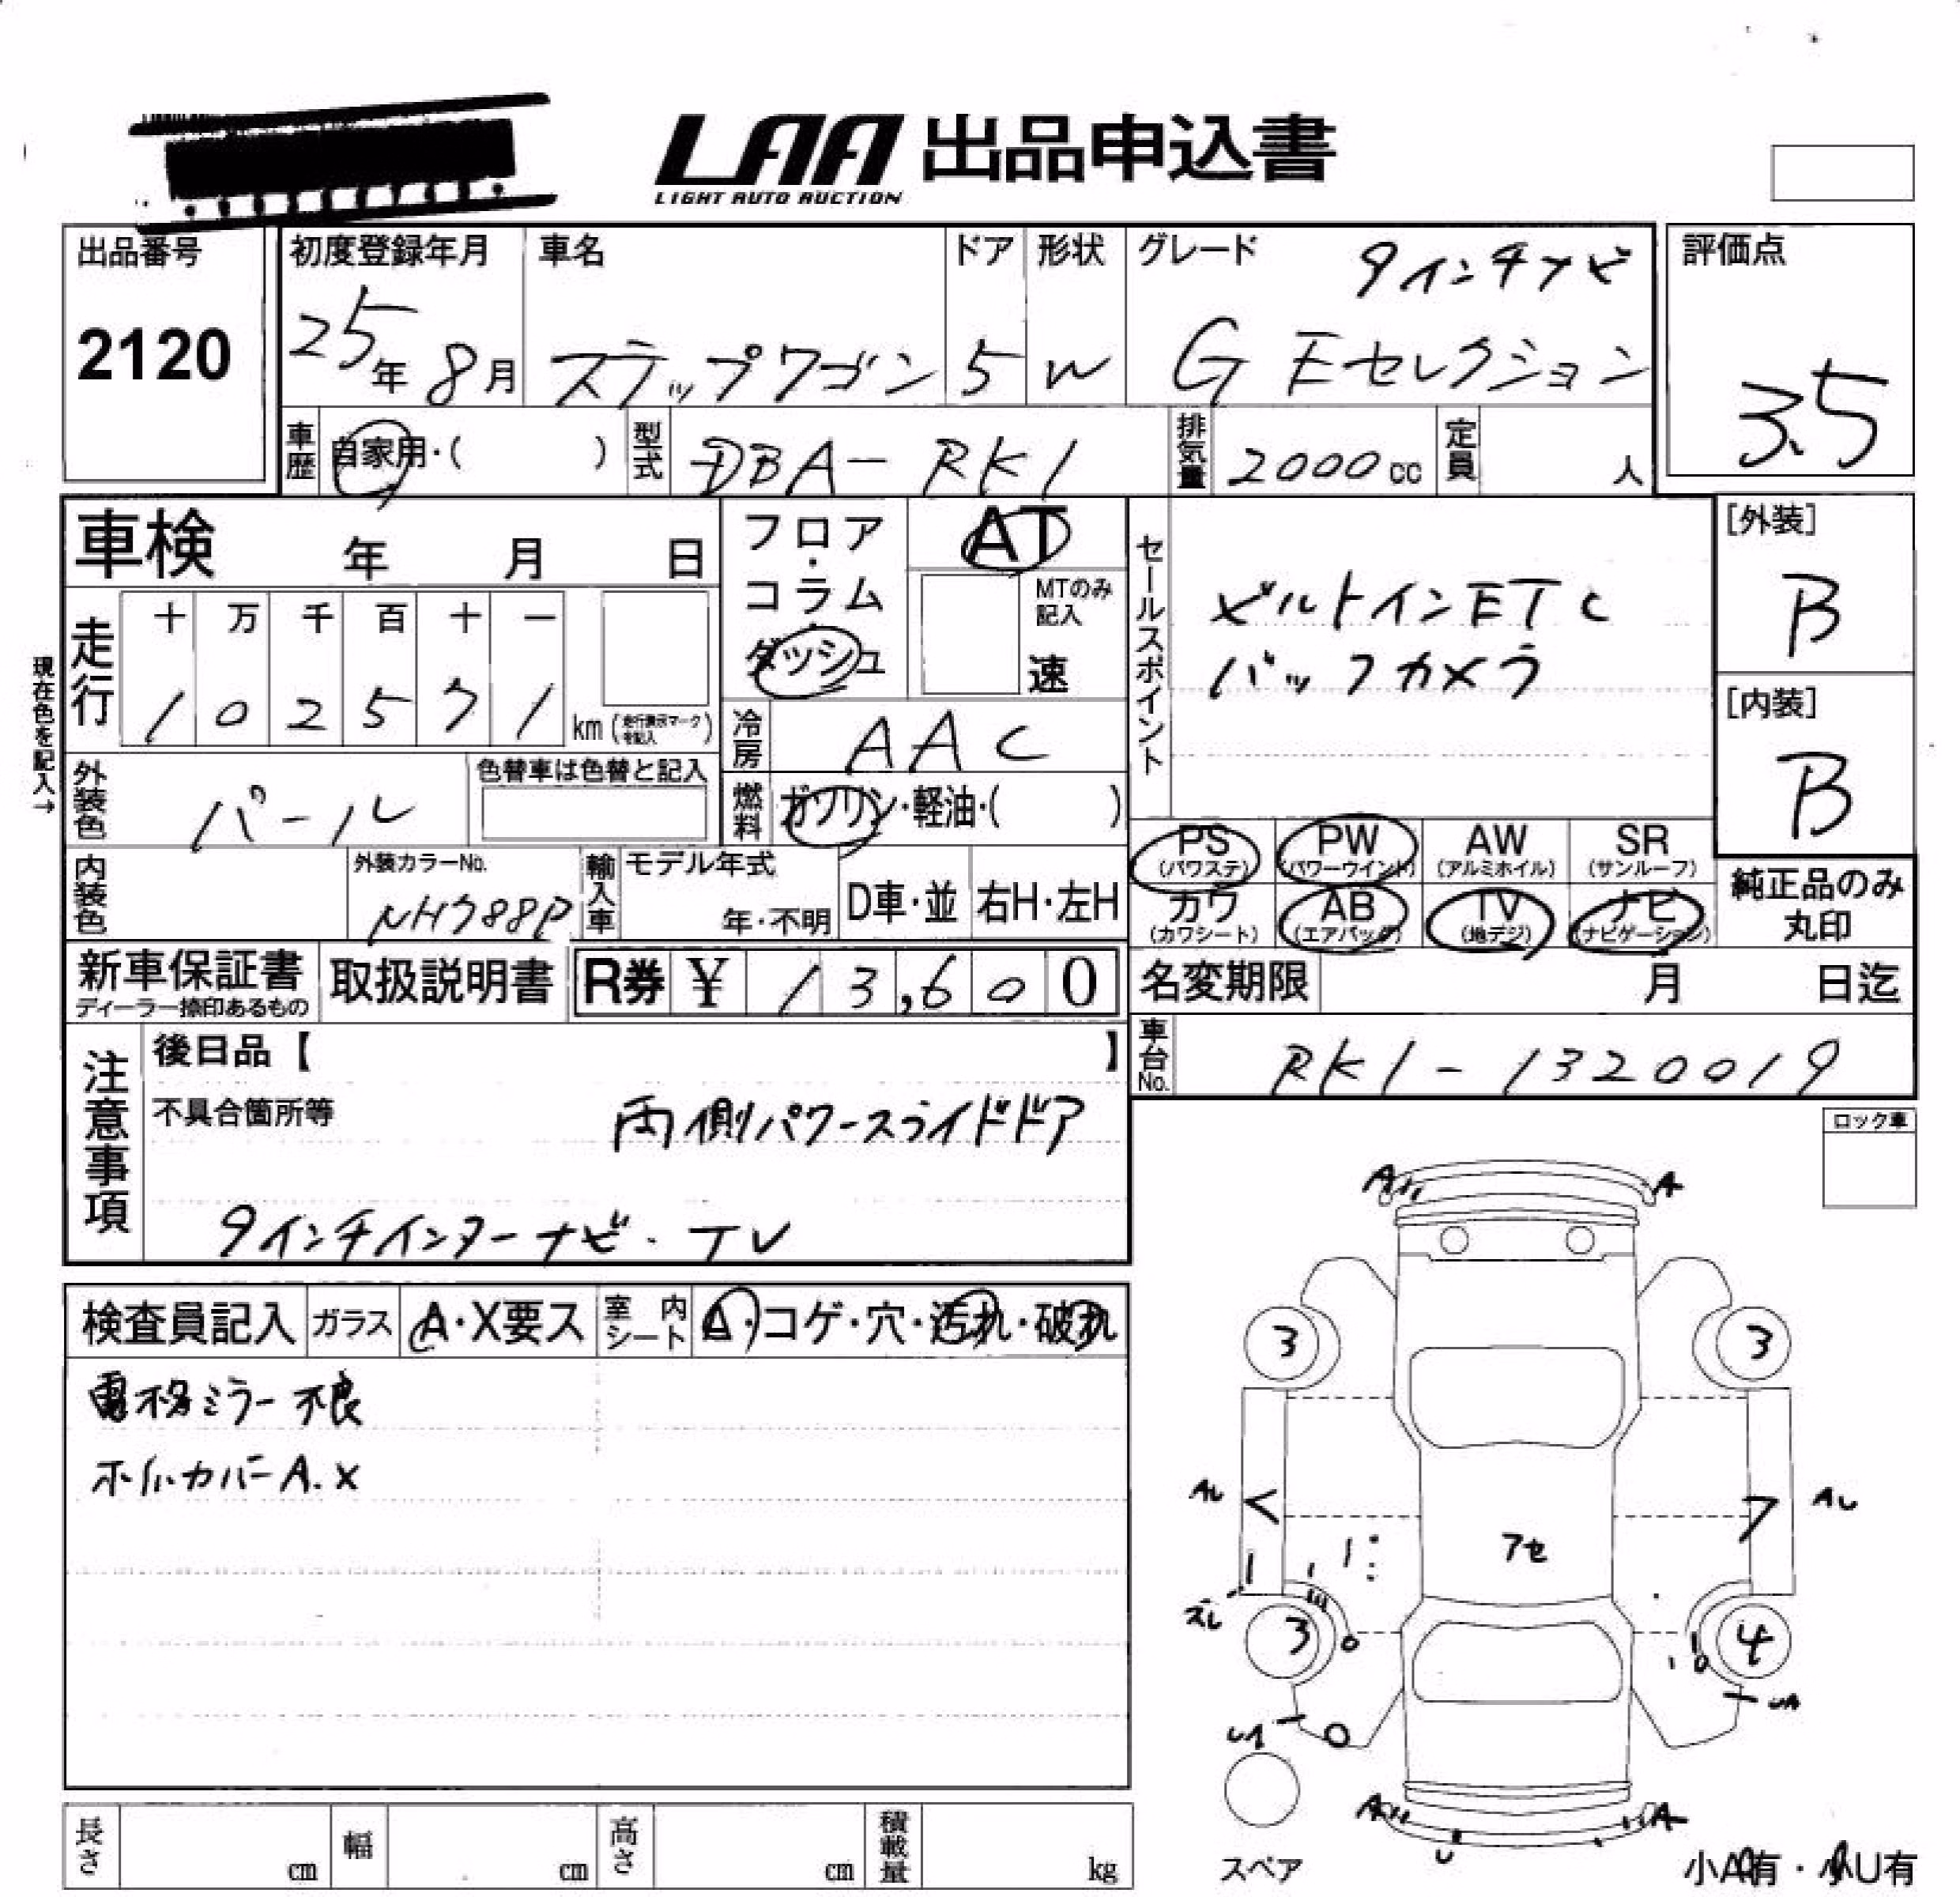 LAA 出品申込書
LIGHT AUTO AUCTION
出品番号
2120
初度登録年月
25年 8月
車名
ステップワゴン
ドア
5
形状
W
グレード
9インチナビ
G Eセレクション
評価点
3.5
車歴 自家用・( )
型式 DBA-RK1
排気量 2000cc
定員 人
車検 年 月 日
フロア・コラム・ダッシュ
AT
MTのみ記入
速
セールスポイント
ビルトインETC
バックカメラ
[外装]
B
[内装]
B
現在色を記入→
走行
十 万 千 百 十 一
1 0 2 5 7 1 km (走行表示マークを記入)
冷房 AAC
外装色 パール
色替車は色替と記入
燃料 ガソリン・軽油・( )
PS (パワステ)
PW (パワーウインド)
AW (アルミホイル)
SR (サンルーフ)
カワ (カワシート)
AB (エアバッグ)
TV (地デジ)
ナビ (ナビゲーション)
純正品のみ丸印
内装色
外装カラーNo.
NH788P
輸入車
モデル年式
年・不明
D車・並
右H・左H
新車保証書
ディーラー捺印あるもの
取扱説明書
R券 ¥ 13,600
名変期限 月 日迄
車台No. RK1-1320019
注意事項
後日品【 】
不具合箇所等
両側パワースライドドア
9インチインターナビ・TV
ロック車
検査員記入
ガラス A・X要ス
室内シート A・コゲ・穴・汚れ・破れ
電格ミラー不良
ホイルカバーA.X
A A
3 3
AU AU
アセ
ズレ
3 4
UA UA
A A
U
スペア
小A有・小U有
長さ cm
幅 cm
高さ cm
積載量 kg